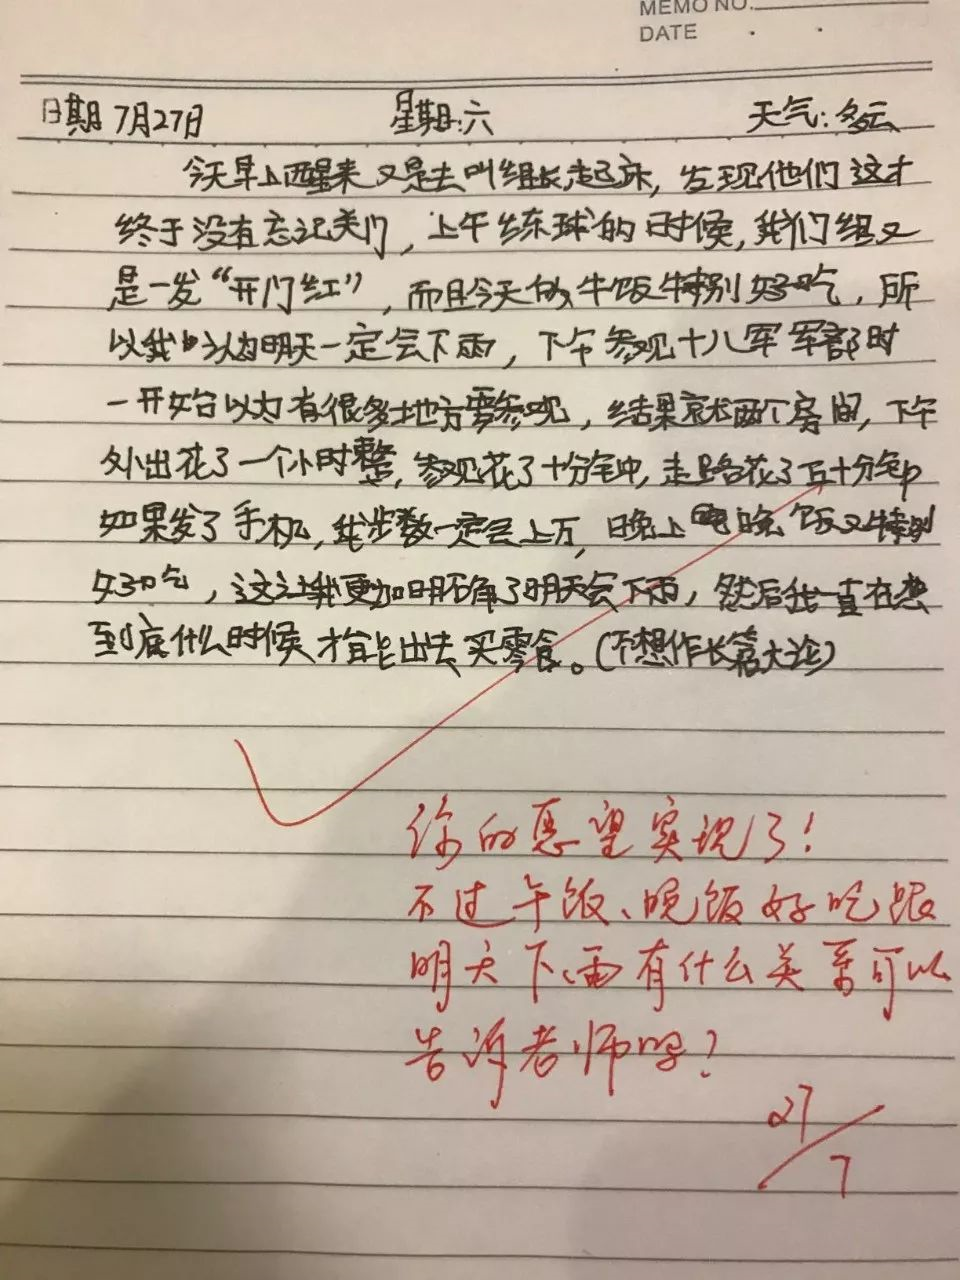 MEMO NO.
DATE
日期 7月27日 星期六 天气:多云
今天早上醒来又是去叫组长起床,发现他们这才
终于没有忘记关门,上午练球的时候,我们组又
是一发“开门红”,而且今天的午饭特别好吃,所
以我认为明天一定会下雨,下午参观十八军军部时
一开始以为有很多地方要参观,结果就两个房间,下午
外出花了一个小时整,参观花了十分钟,走路花了五十分钟
如果发了手机,我步数一定会上万,晚上晚饭又特别
好吃,这让我更加明确了明天会下雨,然后我一直在想
到底什么时候才能出去买零食。(不想作长篇大论)
你的愿望实现了!
不过午饭、晚饭好吃跟
明天下雨有什么关系可以
告诉老师吗?
27/7